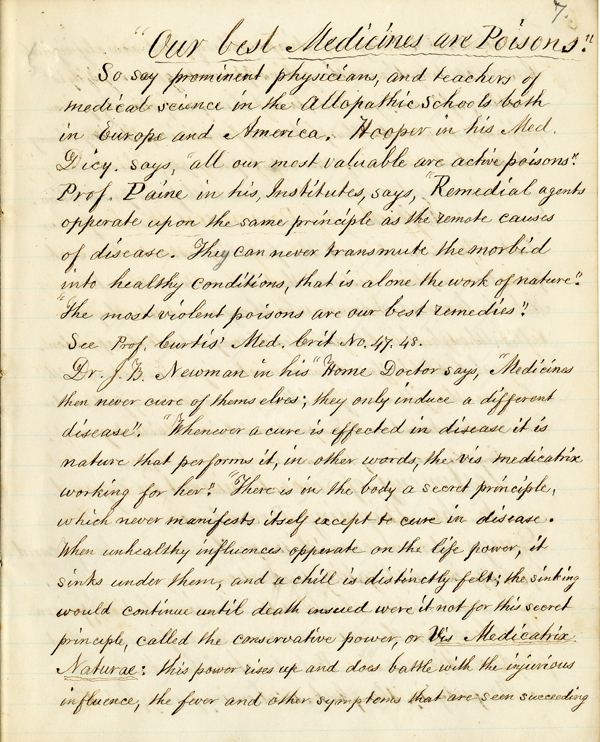 7.
"Our best Medicines are Poisons."
So say prominent physicians, and teachers of
medical science in the Allopathic Schools both
in Europe and America. Hooper in his Med.
Dicy. says, "all our most valuable are active poisons."
Prof. Paine in his, Institutes, says, "Remedial agents
opperate upon the same principle as the remote causes
of disease. They can never transmute the morbid
into healthy conditions, that is alone the work of nature."
"The most violent poisons are our best remedies."
See Prof. Curtis' Med. Crit No. 47. 48.
Dr. J. B. Newman in his "Home Doctor says, "Medicines
then never cure of themselves; they only induce a different
disease". "Whenever a cure is effected in disease it is
nature that performs it, in other words, the vis medicatrix
working for her." "There is in the body a secret principle,
which never manifests itself except to cure in disease.
When unhealthy influences opperate on the life power, it
sinks under them, and a chill is distinctly felt; the sinking
would continue until death insued were it not for this secret
principle, called the conservative power, or Vis Medicatrix
Naturae: this power rises up and does battle with the injurious
influence, the fever and other symptoms that are seen succeeding